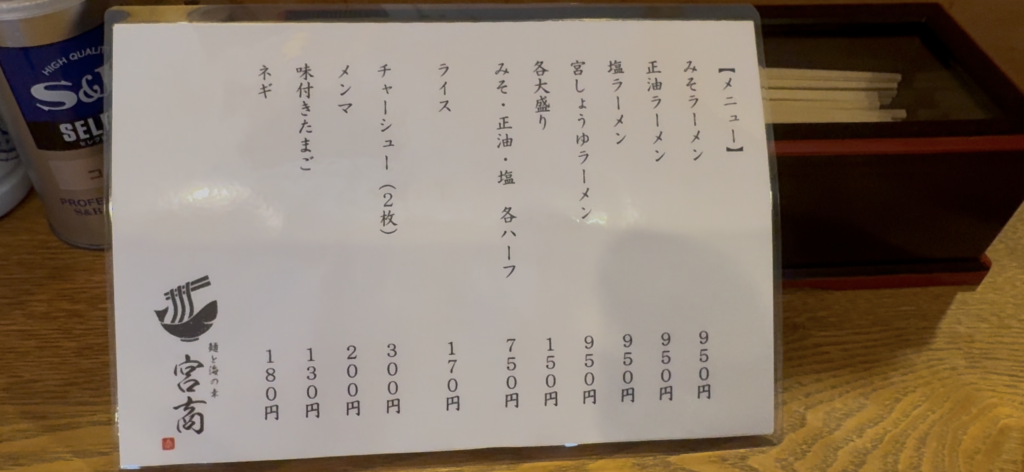 【メニュー】
みそラーメン 950円
正油ラーメン 950円
塩ラーメン 950円
宮しょうゆラーメン 950円
各大盛り 150円
みそ・正油・塩 各ハーフ 750円
ライス 170円
チャーシュー（2枚） 300円
メンマ 200円
味付きたまご 130円
ネギ 180円
宮商
HIGH QUALITY
S&B
SEL
PROFE